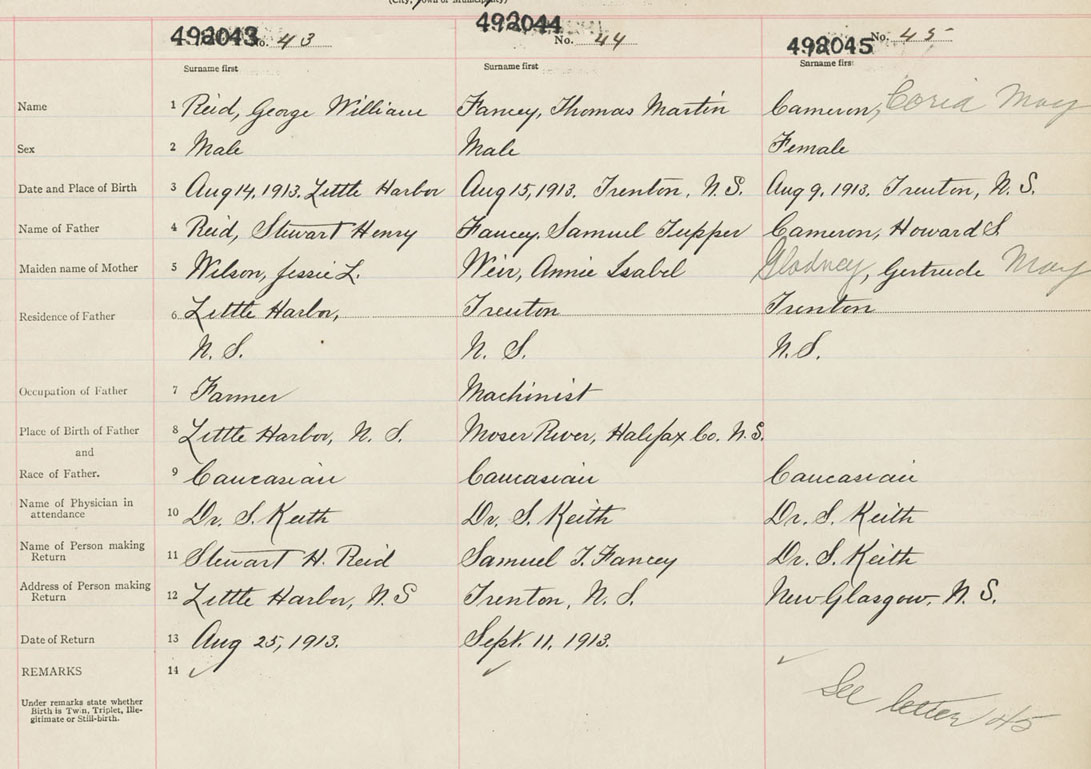 (City, Town or Municipality)
492043 No. 43 492044 No. 44 492045 No. 45
Surname first Surname first Surname first
Name 1 Reid, George William Fancey, Thomas Martin Cameron, May
Sex 2 Male Male Female
Date and Place of Birth 3 Aug 14, 1913. Little Harbor Aug 15, 1913. Trenton, N. S. Aug 9, 1913. Trenton, N. S.
Name of Father 4 Reid, Stewart Henry Fancey, Samuel Tupper Cameron, Howard S
Maiden name of Mother 5 Wilson, Jessie L. Weir, Annie Isabel Gladney, Gertrude May
Residence of Father 6 Little Harbor, Trenton Trenton
N. S. N. S. N. S.
Occupation of Father 7 Farmer Machinist
Place of Birth of Father 8 Little Harbor, N. S. Moser River, Halifax Co. N. S.
and
Race of Father. 9 Caucasian Caucasian Caucasian
Name of Physician in
attendance 10 Dr. S. Keith Dr. S. Keith Dr. S. Keith
Name of Person making
Return 11 Stewart H. Reid Samuel T. Fancey Dr. S. Keith
Address of Person making
Return 12 Little Harbor, N. S Trenton, N. S. New Glasgow, N. S.
Date of Return 13 Aug 25, 1913. Sept. 11, 1913.
REMARKS 14
Under remarks state whether
Birth is Twin, Triplet, Ille-
gitimate or Still-birth.
See letter 45